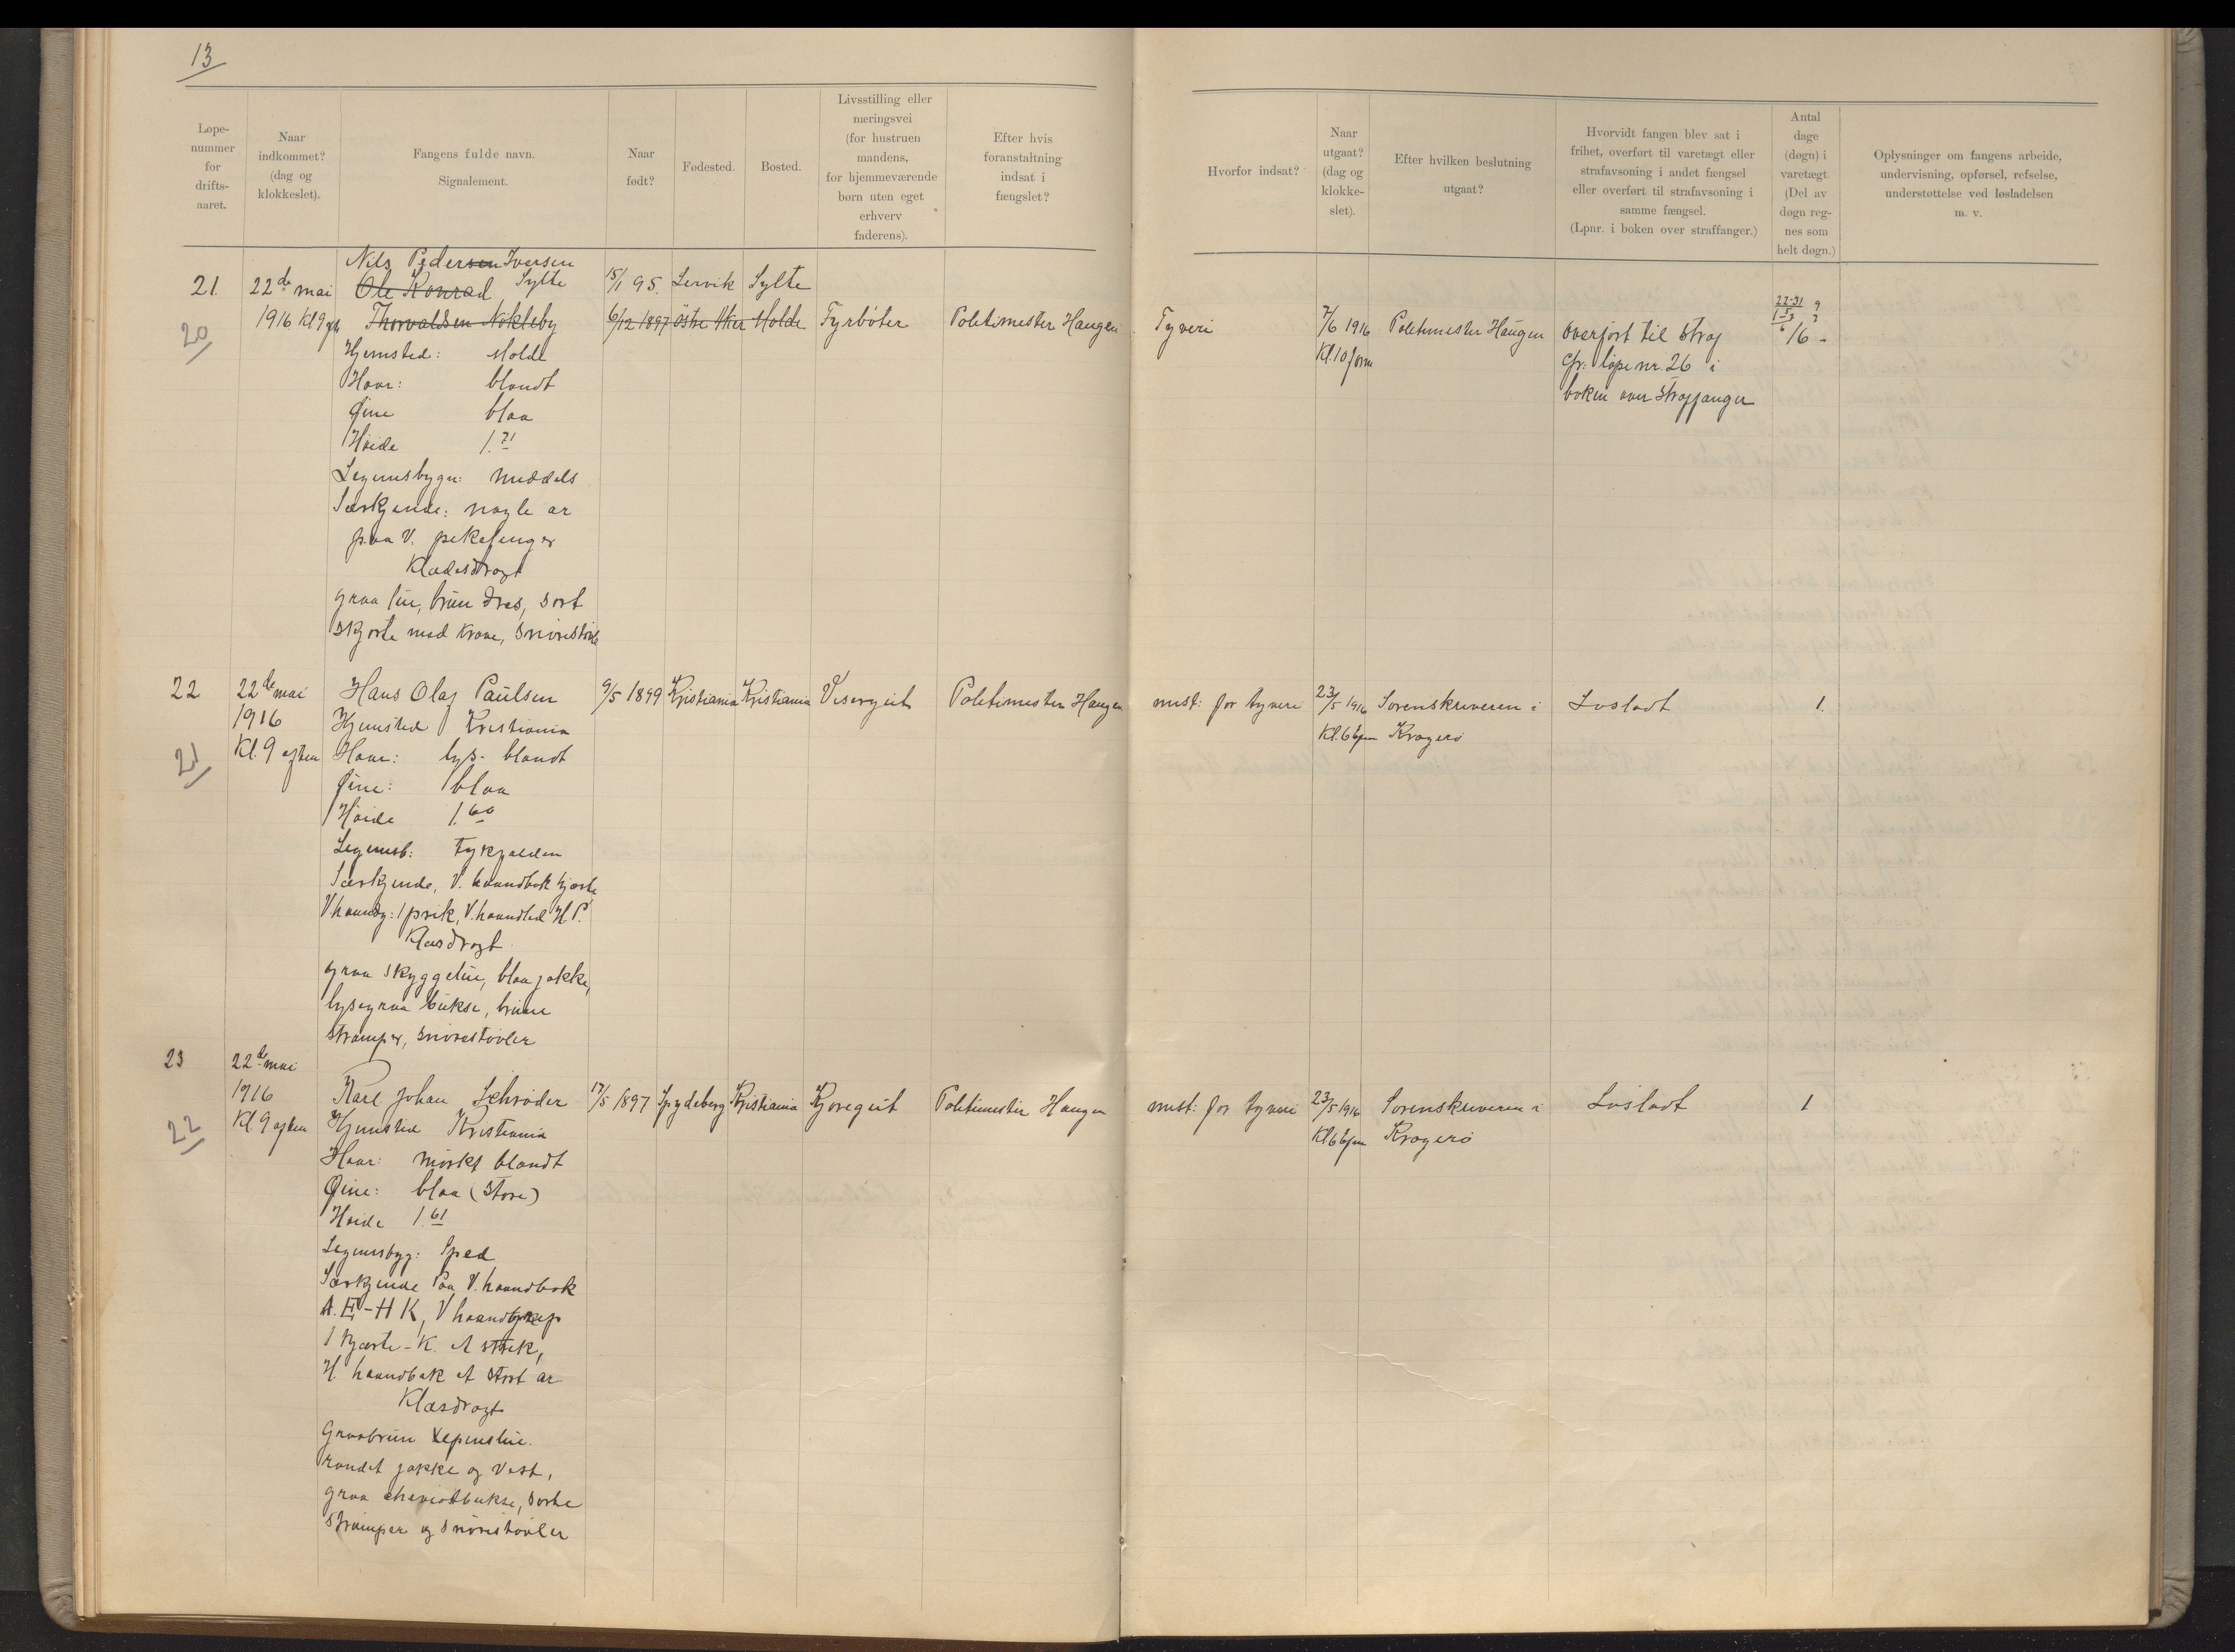 13
Løpe-
nummer
for
drifts-
aaret.
Naar
indkommet?
(dag og
klokkeslet).
Fangens fulde navn.
Signalement.
Naar
født?
Fødested.
Bosted.
Livsstilling eller
næringsvei
(for hustruen
mandens,
for hjemmeværende
børn uten eget
erhverv
faderens).
Efter hvis
foranstaltning
indsat i
fængslet?
Hvorfor indsat?
Naar
utgaat?
(dag og
klokke-
slet).
Efter hvilken beslutning
utgaat?
Hvorvidt fangen blev sat i
frihet, overført til varetægt eller
strafavsoning i andet fængsel
eller overført til strafavsoning i
samme fængsel.
(Lpnr. i boken over straffanger.)
Antal
dage
(døgn) i
varetægt.
(Del av
døgn reg-
nes som
helt døgn.)
Oplysninger om fangens arbeide,
undervisning, opførsel, refselse,
understøttelse ved løsladelsen
m. v.
21.
20
22de mai
1916 Kl 9
Nils Pedersen Iversen
Ole Konrad Sylte
Thorvaldsen Nökleby
Hjemsted: Molde
Haar: blondt
Øine blaa
Høide 1.71
Legemsbygn: middels
Særkjende: nogle ar
paa V. pekefinger
Klædesdragt
graa lue, brun dres, sort
skjorte med krave, snörestövle
15/1 95.
6/12 1897
Lervik
östre Aker
Sylte
Molde
Fyrböter
Politimester Haugen
Tyveri
7/6 1916
Kl. 10 form
Politimester Haugen
Overfört til straf
cfr: löpe nr. 26 i
boken over straffanger
22-31
16 -
22
21
22de mai
1916
Kl. 9 aften
Hans Olaf Paulsen
Hjemsted Kristiania
Haar: lys- blondt
Øine: blaa
Høide 1.60
Legemsb: tykfalden
Særkjende, V. haandbak hjerte
V haandg: 1 prik, V. haandled H. P.
Klæsdragt
graa skyggelue, blaa jakke,
lysegraa bukse, brune
strømper, snörestövler
9/5 1899
Kristiania
Kristiania
Visergut
Politimester Haugen
mist: for tyveri
23/5 1916
Kl. 6
Sorenskriveren i
Kragerö
Lösladt
1.
23
22
22de mai
1916
Kl. 9 aften
Karl Johan Schröder
Hjemsted Kristiania
Haar: mörkt blondt
Øine: blaa (store)
Høide 1.61
Legemsbyg: Sped
Særkjende Paa V. haandbak
A. E - H K, V haandgrep
1 hjerte - K. et strek,
H. haandbak et stort ar
Klæsdragt
Graabrun
randet jakke og vest,
graa cheviotbukse, sorte
strömper og snörestövler
17/5 1897
Spydeberg
Kristiania
Kjöregut
Politimester Haugen
mist: for tyveri
23/5 1916
Kl 6
Sorenskriveren i
Kragerö
Lösladt
1